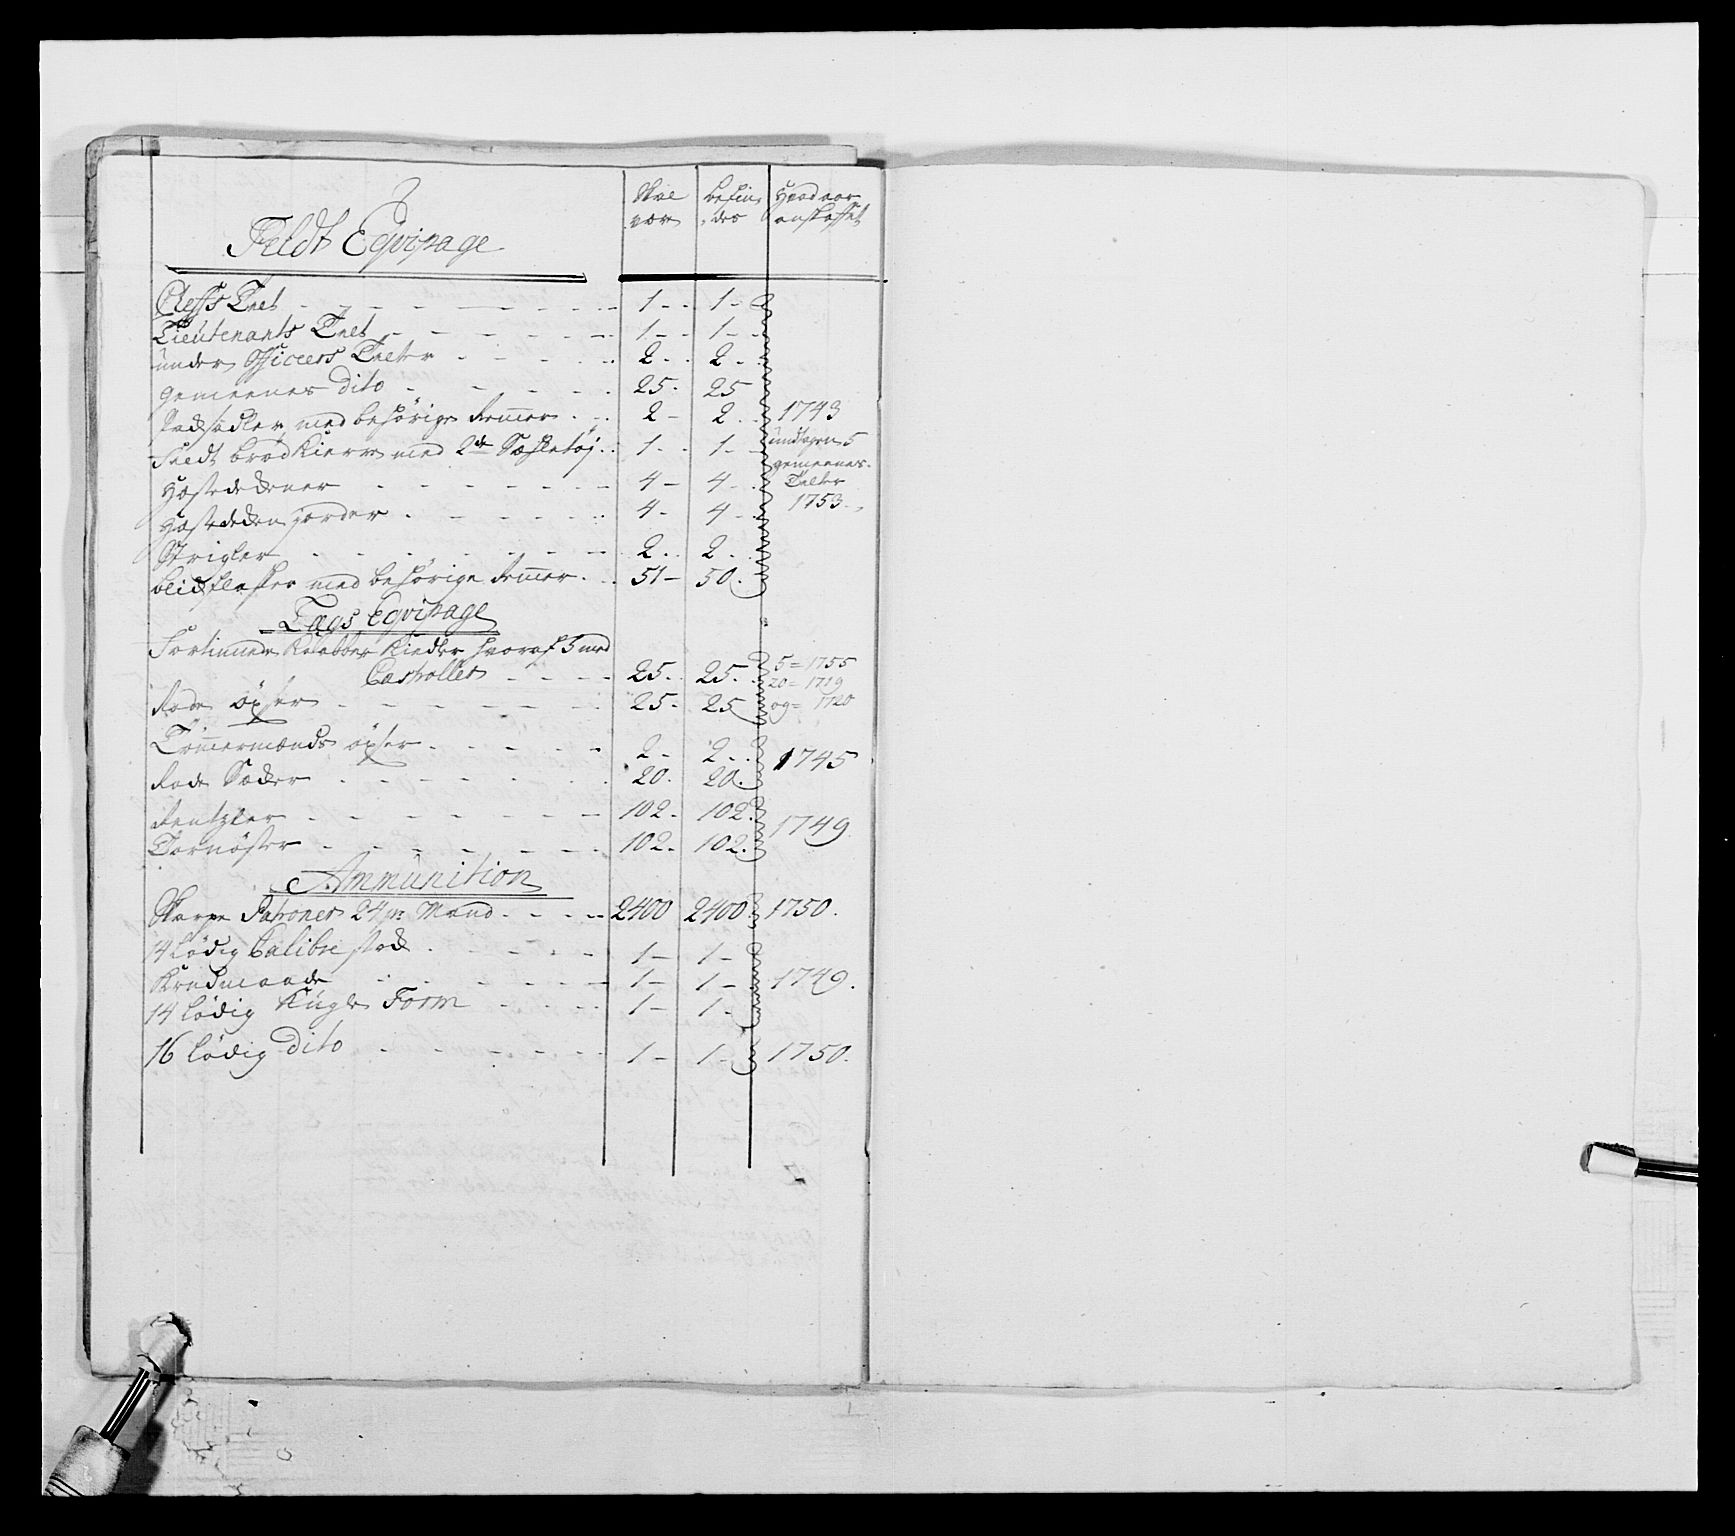 Skal være	befin, des	Hvad aar anskaffet
Feldt Eqvipage
Cheffs Telt - - - 1 - 1 -
Lieutenants Telt - - - 1 - 1 -
under Officcers Telter - - - 2 - 2 -
gemeenes dito - - - 25 - 25
Padsadler med behörige Remmer - 2 - 2 - 1743
Feldt brödkierre med 2de Sæhletöj - 1 - 1 - undtagen 5
gemeenes
Hæstedekener - - - 4 - 4 - Telter
Hæstedeken gjorder - - - 4 - 4 - 1753
Strigler - - - 2 - 2 -
blickflasker med behörige Remmer - 51 - 50
Lags Eqvipage
Fortinnede Kaabber Kiedler hvoraf 5 med
Castroller - - - 25 - 25 - 5 = 1755
20 = 1719
Rode öxser - - - 25 - 25 og = 1720
Tömmermænds öxser - - - 2 - 2 - 1745
Rode Sæcker - - - 20 - 20
Rentzler - - - 102 - 102 1749
Tornöster - - - 102 - 102
Ammunition
Skarpe Patroner 24 pr Mand - - - 2400 2400 1750.
14 lödig Calibre stock - - - 1 - 1 -
Krudmaade - - - 1 - 1 - 1749.
14 lödig Kugle Form - - - 1 - 1 -
16 lödig dito - - - 1 - 1 - 1750.